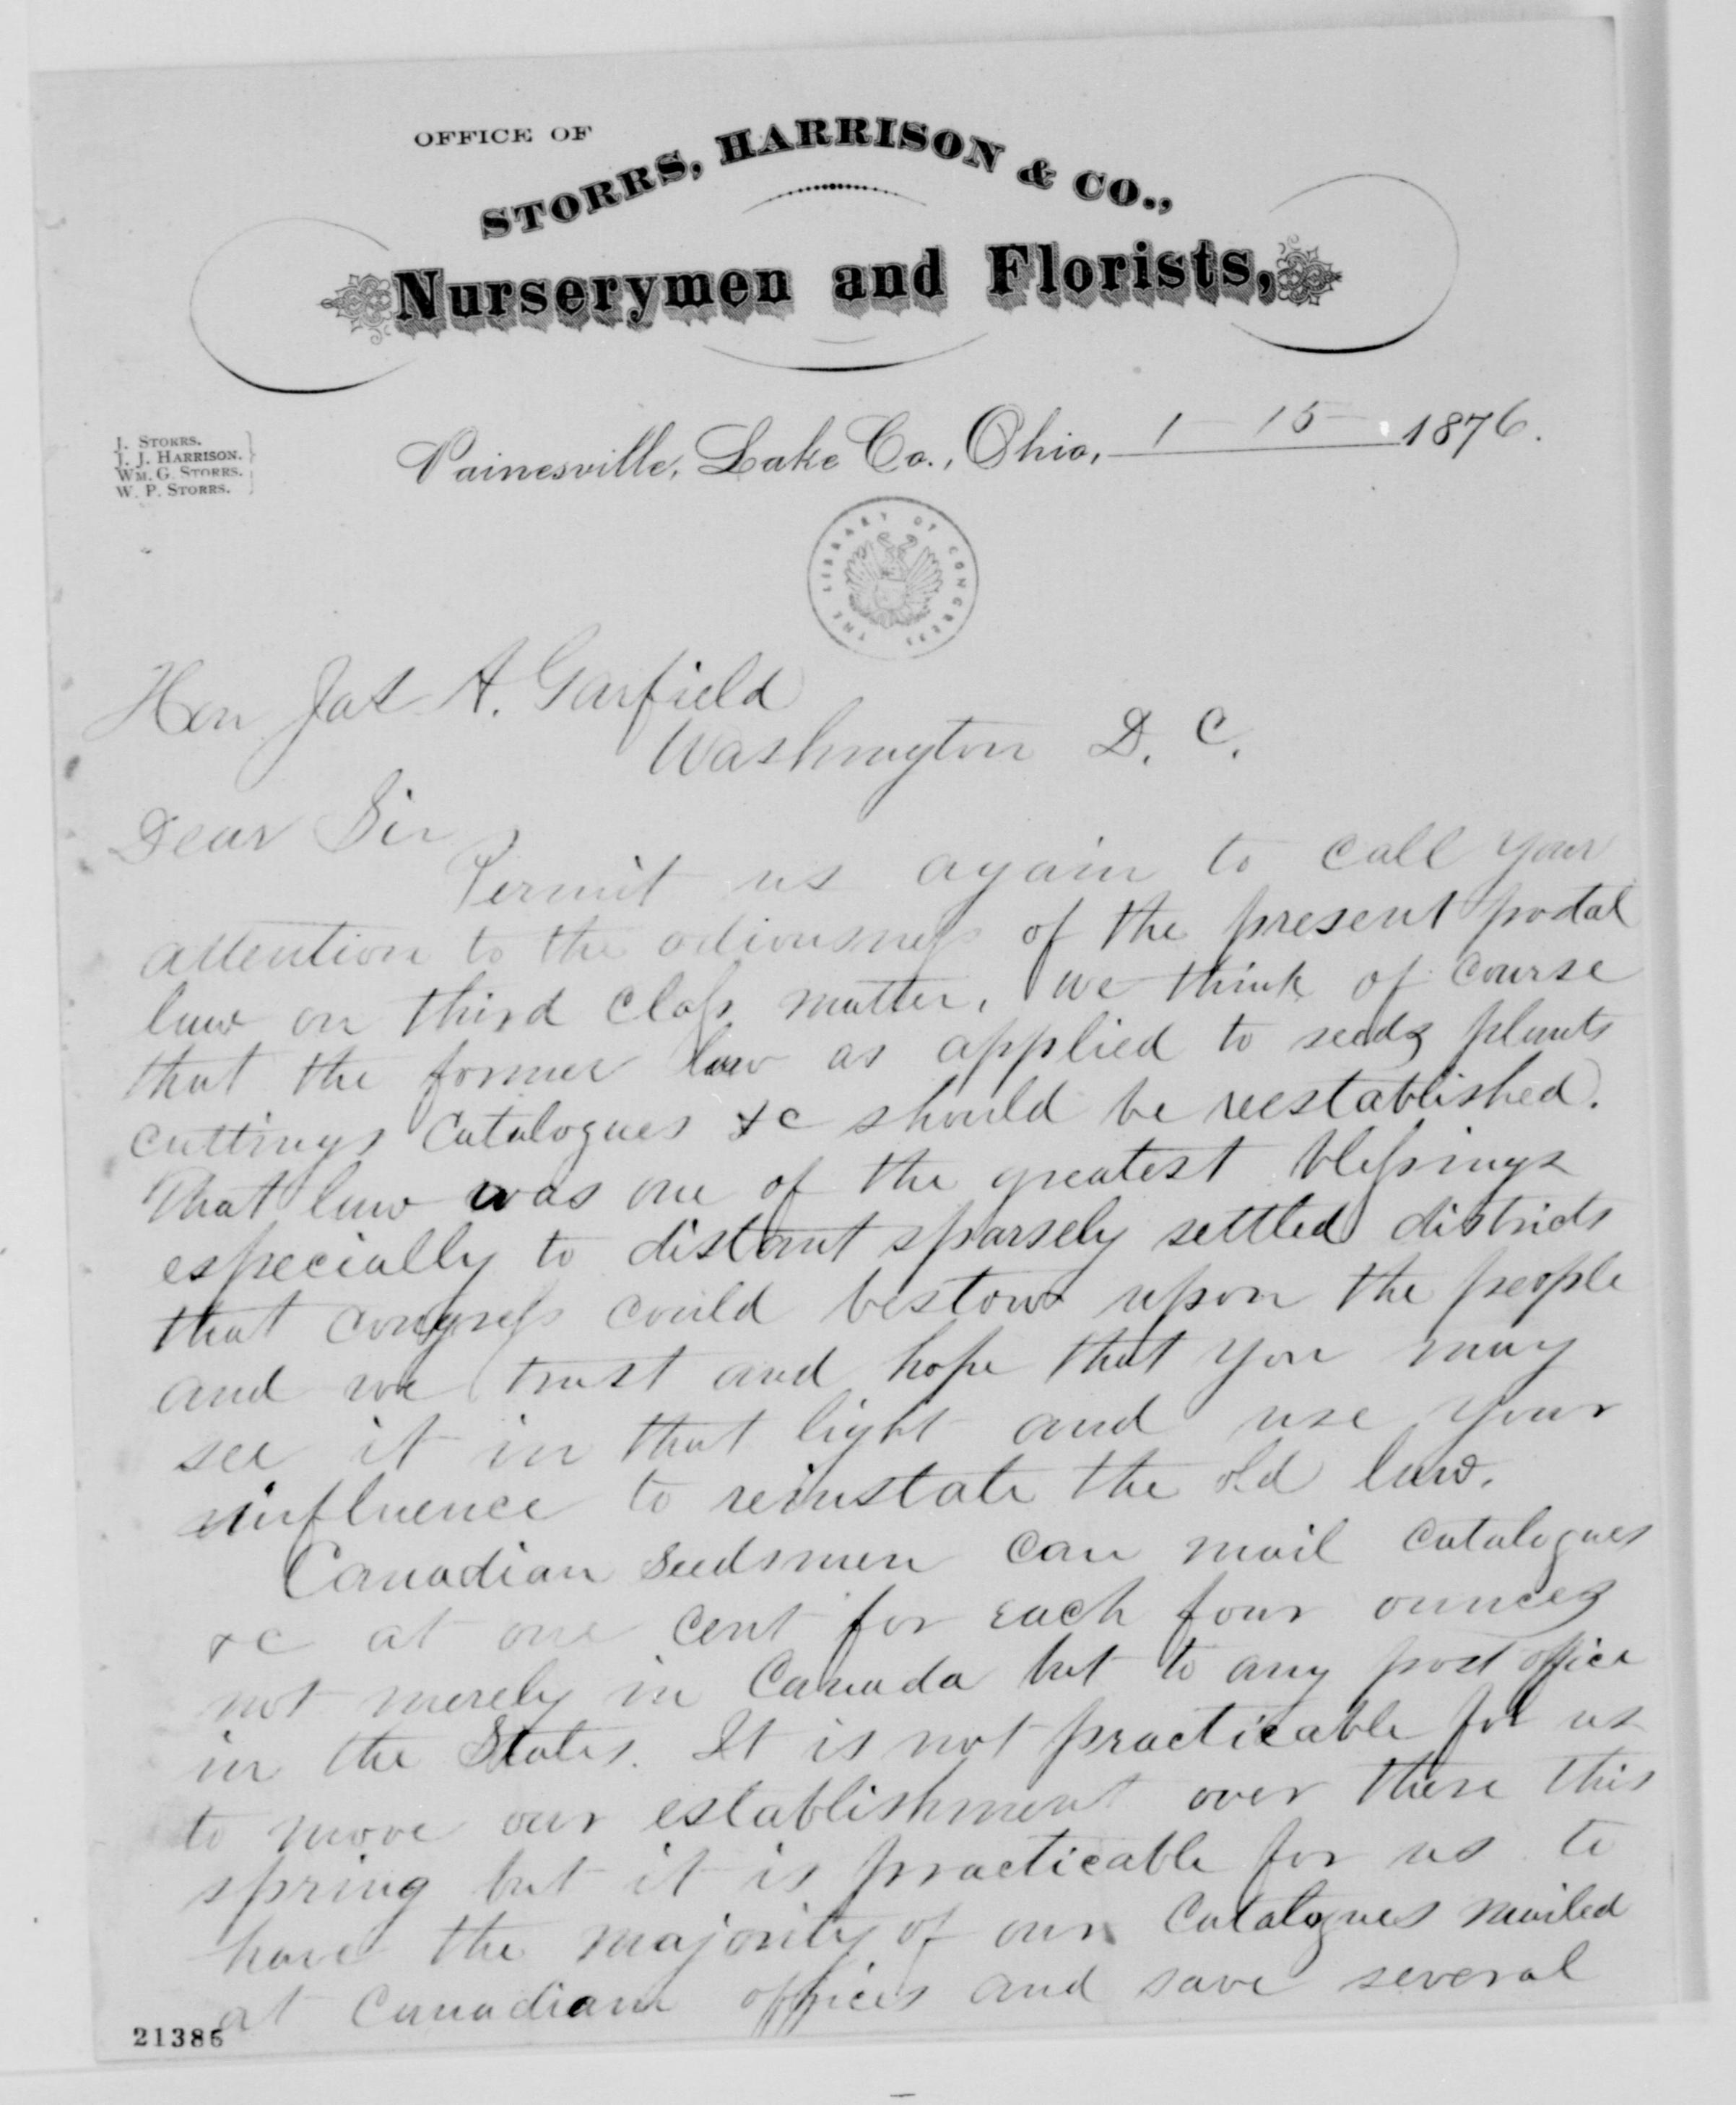 OFFICE OF
STORRS, HARRISON & CO.,
Nurserymen and Florists,
J. STORRS.
J. J. HARRISON.
WM. G. STORRS.
W. P. STORRS.
Painesville, Lake Co., Ohio, 1 - 15 - 1876.
THE LIBRARY OF CONGRESS
Hon Jas A. Garfield
Washington D. C.
Dear Sir
Permit us again to call your
attention to the odiousness of the present postal
law on third class matter. We think of course
that the former law as applied to seeds plants
cuttings Catalogues &c should be reestablished.
That law was one of the greatest blessings
especially to distant sparsely settled districts
that congress could bestow upon the people
and we trust and hope that you may
see it in that light and use your
influence to reinstate the old law.
Canadian seedsmen can mail catalogues
&c at one cent for each four ounces
not merely in Canada but to any post office
in the States. It is not practicable for us
to move our establishment over there this
spring but it is practicable for us to
have the majority of our Catalogues mailed
at Canadian offices and save several
21386